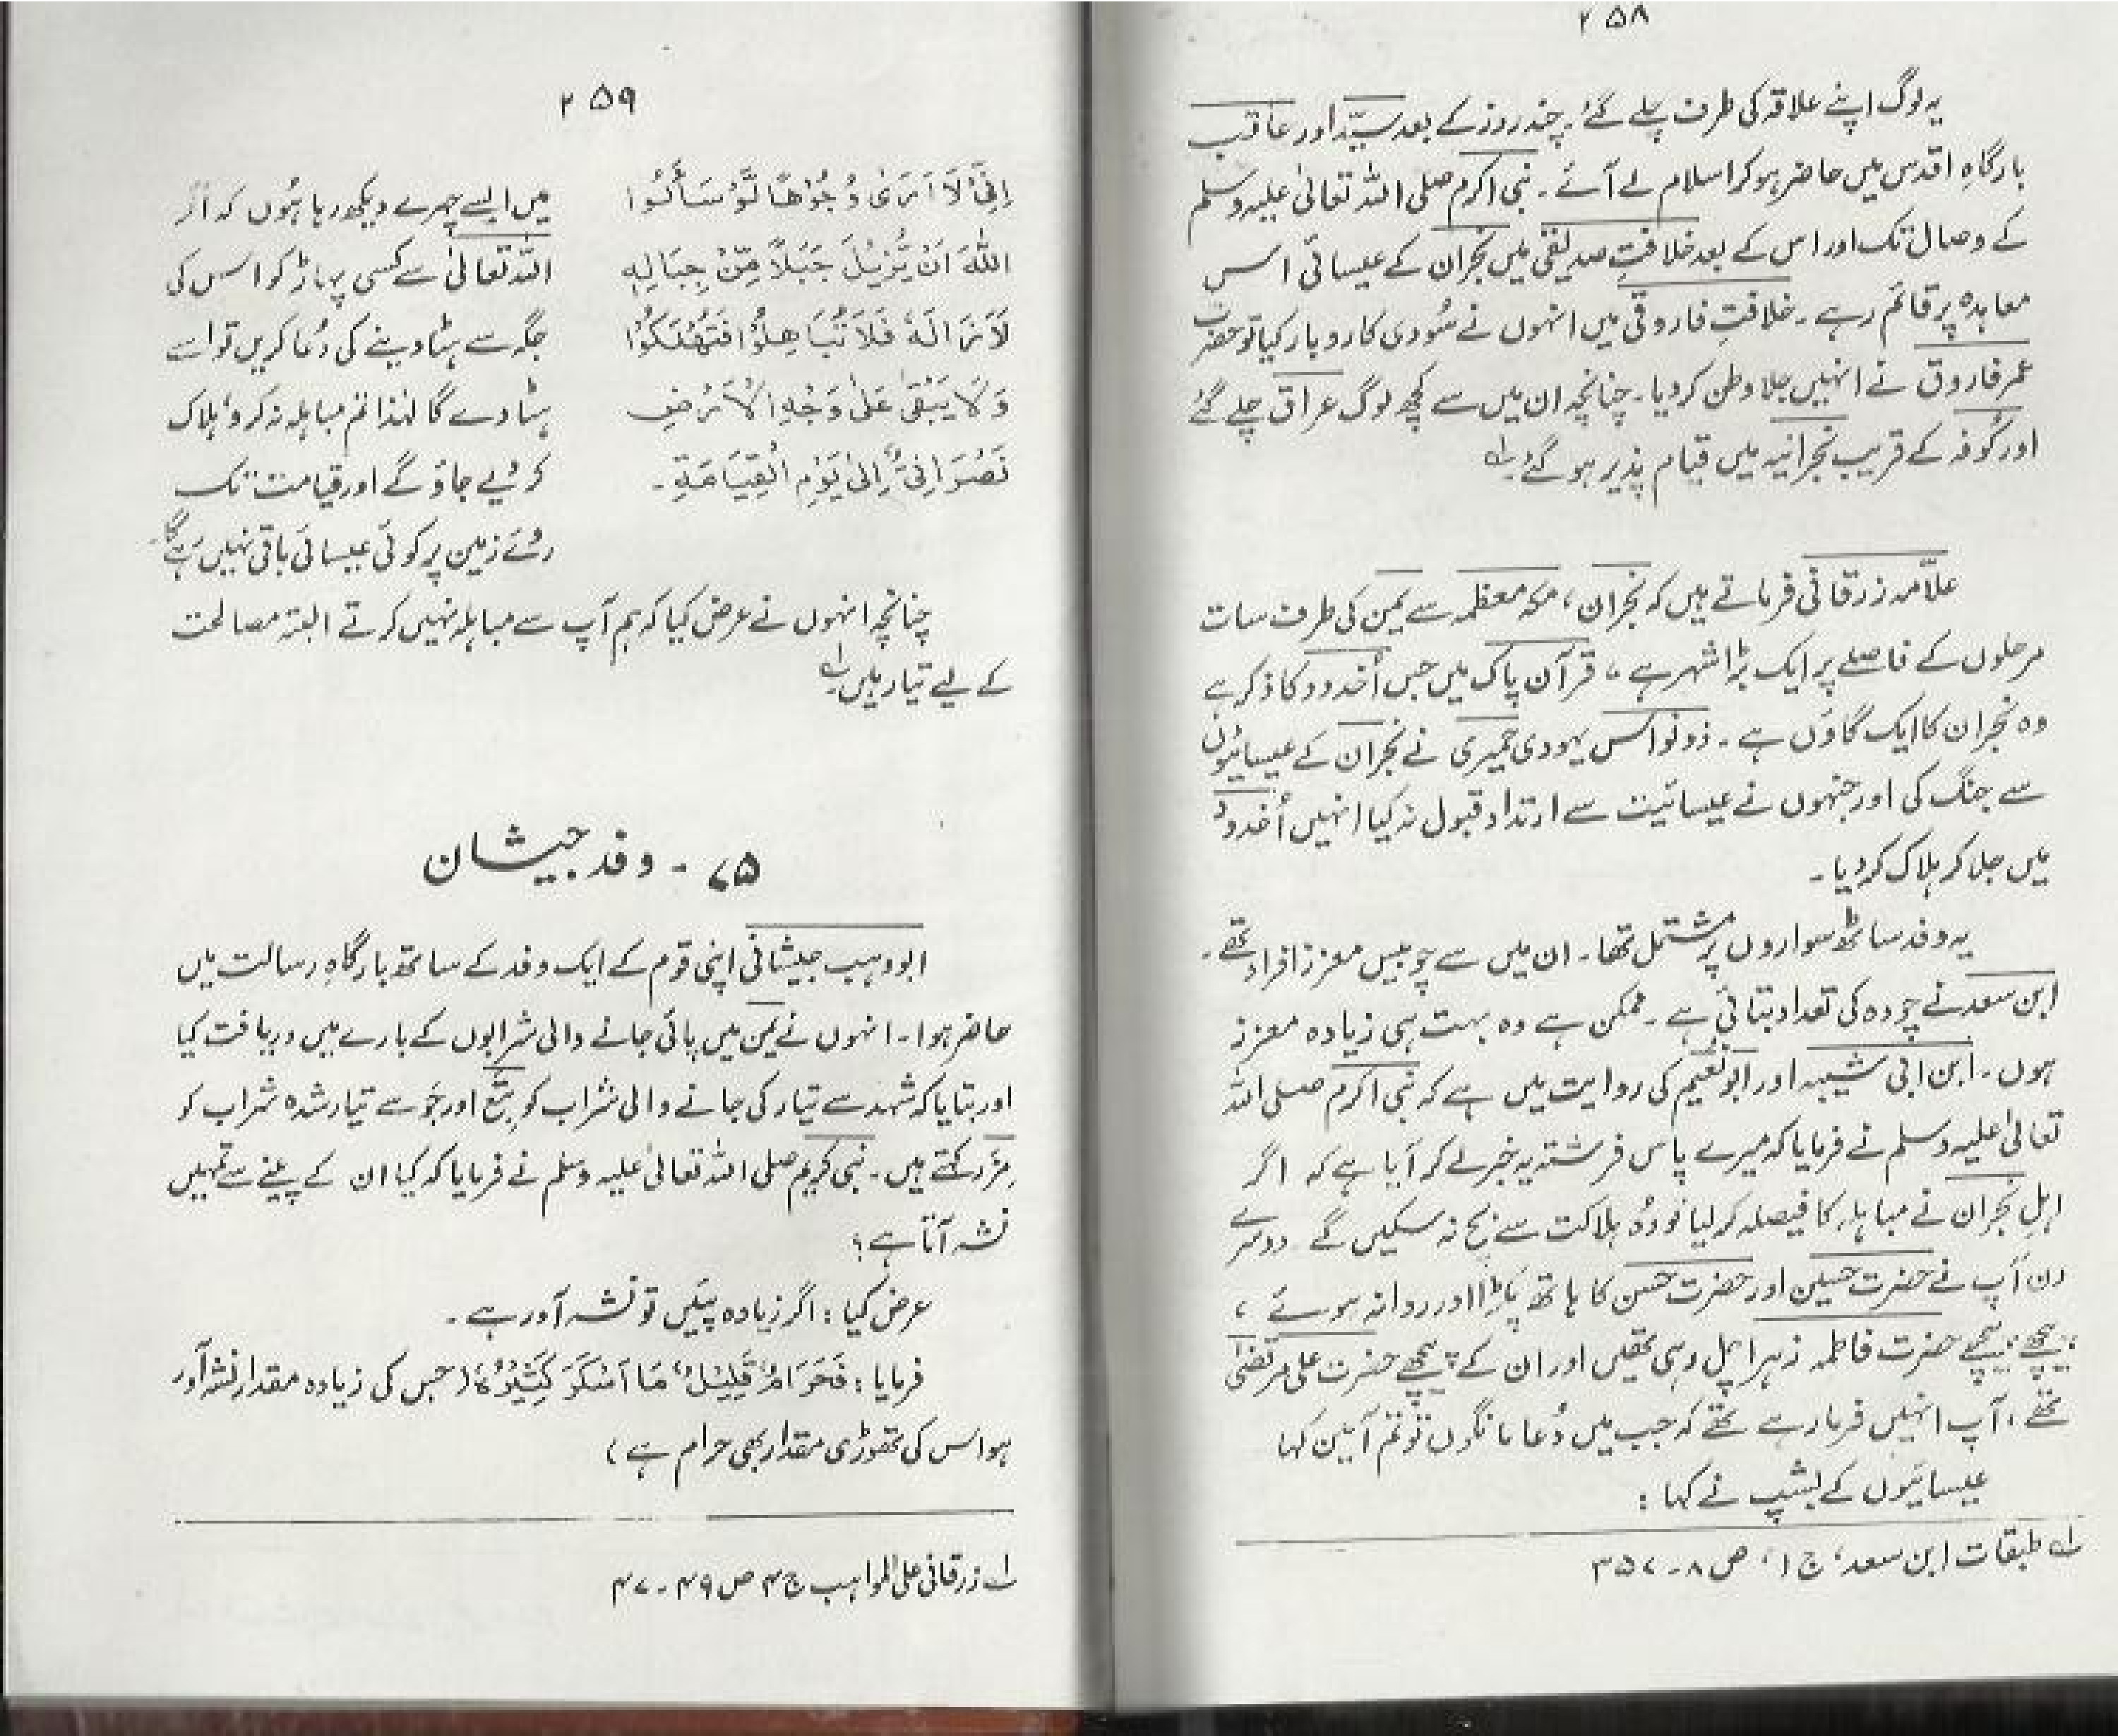 ۲۵۸
یہ لوگ اپنے علاقہ کی طرف چلے گئے۔ چند روز کے بعد سیّد اور عاقب
بارگاہِ اقدس میں حاضر ہو کر اسلام لے آئے۔ نبی اکرم صلی اللہ تعالیٰ علیہ وسلم
کے وصال تک اور اس کے بعد خلافتِ صدیقی میں نجران کے عیسائی اسس
معاہدہ پر قائم رہے۔ خلافتِ فاروقی میں انہوں نے سُودی کاروبار کیا تو حضرت
عمر فاروق نے انہیں جلا وطن کر دیا۔ چنانچہ ان میں سے کچھ لوگ عراق چلے گئے
اور کُوفہ کے قریب نجرانیہ میں قیام پذیر ہو گئے۔ لہ
علّامہ زرقانی فرماتے ہیں کہ نجران، مکہ معظمہ سے یمن کی طرف سات
مرحلوں کے فاصلے پر ایک بڑا شہر ہے، قرآن پاک میں جس اُخدود کا ذکر ہے
وہ نجران کا ایک گاؤں ہے۔ ذونواس یہودی حمیری نے نجران کے عیسائیوں
سے جنگ کی اور جنہوں نے عیسائیت سے ارتداد قبول نہ کیا انہیں اُخدود
میں جلا کر ہلاک کر دیا۔
یہ وفد ساٹھ سواروں پر مشتمل تھا۔ ان میں سے چوبیس معزز افراد تھے۔
ابن سعد نے چودہ کی تعداد بتائی ہے۔ ممکن ہے وہ بہت ہی زیادہ معزز
ہوں۔ ابن ابی شیبہ اور ابو نعیم کی روایت میں ہے کہ نبی اکرم صلی اللہ
تعالیٰ علیہ وسلم نے فرمایا کہ میرے پاس فرشتہ یہ خبر لے کر آیا ہے کہ اگر
اہلِ نجران نے مباہلہ کا فیصلہ کر لیا تو وُہ ہلاکت سے بچ نہ سکیں گے۔ دوسرے
دن آپ نے حضرت حسین اور حضرت حسن کا ہاتھ پکڑا اور روانہ ہوئے،
پیچھے پیچھے حضرت فاطمہ زہرا چل رہی تھیں اور ان کے پیچھے حضرت علی مرتضیٰ
تھے، آپ انہیں فرما رہے تھے کہ جب میں دُعا مانگوں تو تم آمین کہنا
عیسائیوں کے بشپ نے کہا:
لہ طبقات ابن سعد، ج ۱، ص ۸ - ۳۵۷
۲۵۹
اِنِّیْ لَاَ اَرَیٰ وُجُوْھًا لَّوْ سَأَلُوْا میں ایسے چہرے دیکھ رہا ہُوں کہ اگر
اللہَ اَنْ یُّزِیْلَ جَبَلًا مِّنْ جِبَالِہٖ اللہ تعالیٰ سے کسی پہاڑ کو اسس کی
لَاَزَالَہٗ فَلَا تُبَاھِلُوْا فَتَھْلَکُوْا جگہ سے ہٹا دینے کی دُعا کریں تو اسے
وَلَا یَبْقٰی عَلٰی وَجْہِ الْاَرْضِ ہٹا دے گا لہٰذا تم مباہلہ نہ کرو، ہلاک
نَصْرَانِیٌّ اِلٰی یَوْمِ الْقِیَامَۃِ۔ کر دیے جاؤ گے اور قیامت تک
روئے زمین پر کوئی عیسائی باقی نہیں رہے گا۔
چنانچہ انہوں نے عرض کیا کہ ہم آپ سے مباہلہ نہیں کرتے البتہ مصالحت
کے لیے تیار ہیں۔ لہ
۷۵ - وفد جیشان
ابو وہب جیشانی اپنی قوم کے ایک وفد کے ساتھ بارگاہِ رسالت میں
حاضر ہوا۔ انہوں نے یمن میں پائی جانے والی شرابوں کے بارے میں دریافت کیا
اور بتایا کہ شہد سے تیار کی جانے والی شراب کو بِتْع اور جَو سے تیار شدہ شراب کو
مِزَر کہتے ہیں۔ نبی کریم صلی اللہ تعالیٰ علیہ وسلم نے فرمایا کہ کیا ان کے پینے سے تمہیں
نشہ آتا ہے؟
عرض کیا: اگر زیادہ پئیں تو نشہ آور ہے۔
فرمایا: فَحَرَامٌ قَلِیْلُ مَا اَسْکَرَ کَثِیْرُہٗ (جس کی زیادہ مقدار نشہ آور
ہو اس کی تھوڑی مقدار بھی حرام ہے)
لہ زرقانی علی المواہب ج ۴ ص ۴۹ - ۴۷